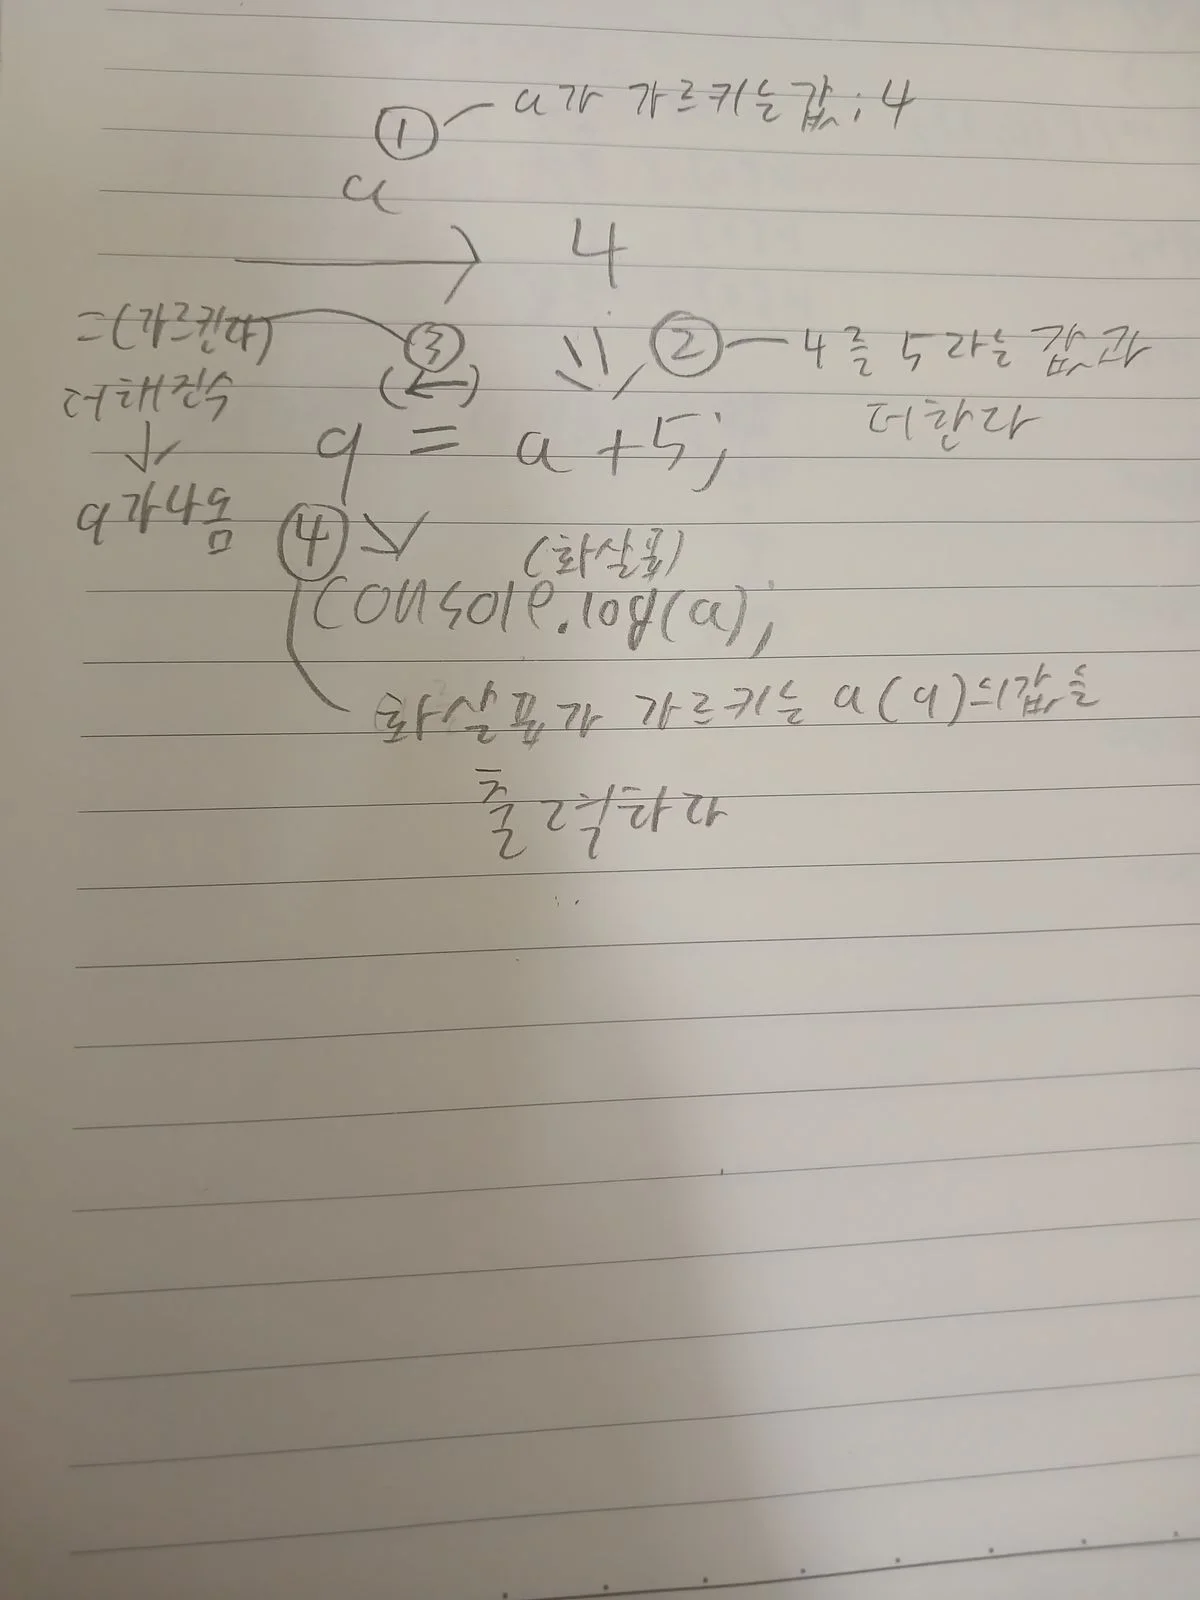 ① a가 가르키는값; 4
a
→ 4
=(가르킨다) ③ ② 4를 5라는 값과
더해진수 (←) 더한다
9 = a+5;
9가나옴 ④
(화살표)
console.log(a);
화살표가 가르키는 a(9)의값을
출력하라